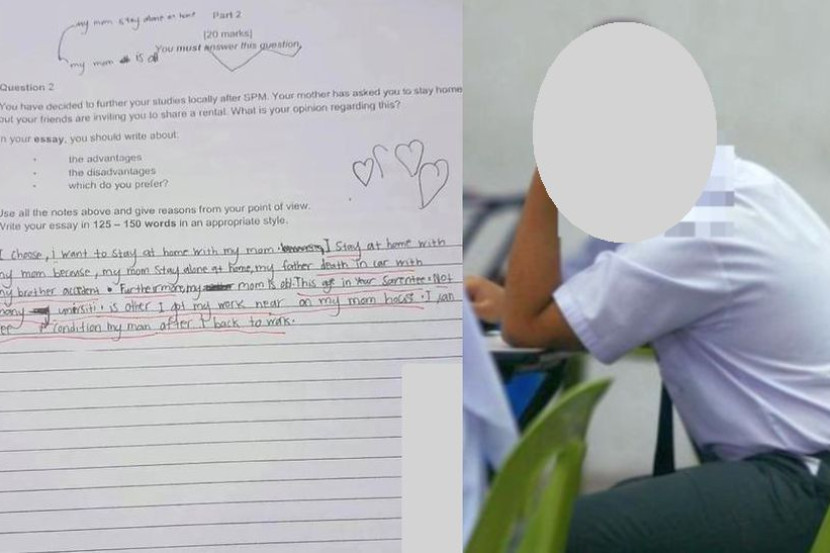 my mom stay alone at home
Part 2
[20 marks]
my mom is
You must answer this question.
Question 2
You have decided to further your studies locally after SPM. Your mother has asked you to stay home
but your friends are inviting you to share a rental. What is your opinion regarding this?
In your essay, you should write about:
- the advantages
- the disadvantages
- which do you prefer?
Use all the notes above and give reasons from your point of view.
Write your essay in 125 – 150 words in an appropriate style.
I choose, i want to stay at home with my mom. I stay at home with
my mom because, my mom stay alone at home, my father death in car with
my brother accident. Furthermore, my mom is old. This age in Your Not
universiti. is after I got my work near on my mom house. I can
condition my mom after I back to work.